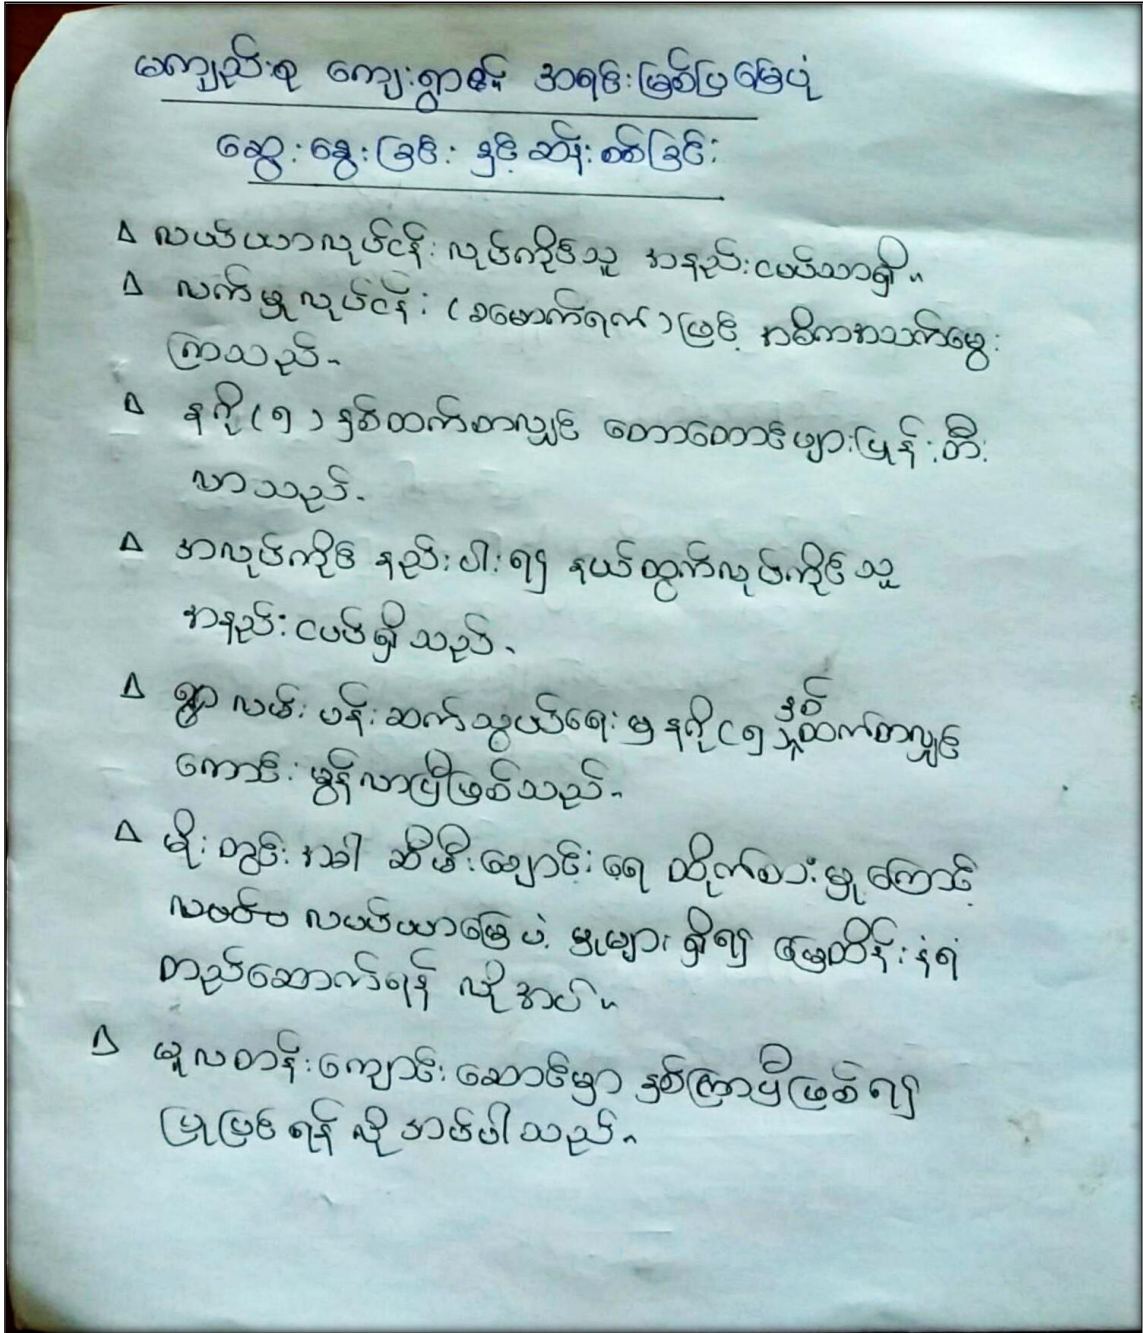 မကျည်းစု ကျေးရွာ၏ အရင်းမြစ်ပြ မြေပုံ
ဆွေးနွေးခြင်း နှင့် ဆန်းစစ်ခြင်း
Δ လယ်ယာလုပ်ငန်း လုပ်ကိုင်သူ အနည်းငယ်သာရှိ။
Δ လက်မှုလုပ်ငန်း (ခမောက်ရက်) ဖြင့် အဓိကအသက်မွေး
ကြသည်။
Δ နဂို (၅) နှစ်ထက်စာလျှင် တောတောင်များပြုန်းတီး
လာသည်။
Δ အလုပ်ကိုင် နည်းပါး၍ နယ်ထွက်လုပ်ကိုင်သူ
အနည်းငယ်ရှိသည်။
Δ ရွာ လမ်းပန်းဆက်သွယ်ရေးမှ နဂို (၅) နှစ်ထက်စာလျှင်
ကောင်းမွန်လာပြီဖြစ်သည်။
Δ မိုးတွင်းအခါ ဆီမီးချောင်းရေ တိုက်စားမှုကြောင့်
လယ်ယာမြေပဲ့မှုများရှိ၍ မြေထိန်းနံရံ
တည်ဆောက်ရန် လိုအပ်။
Δ မူလတန်းကျောင်းဆောင်မှာ နှစ်ကြာပြီဖြစ်၍
ပြုပြင်ရန် လိုအပ်ပါသည်။